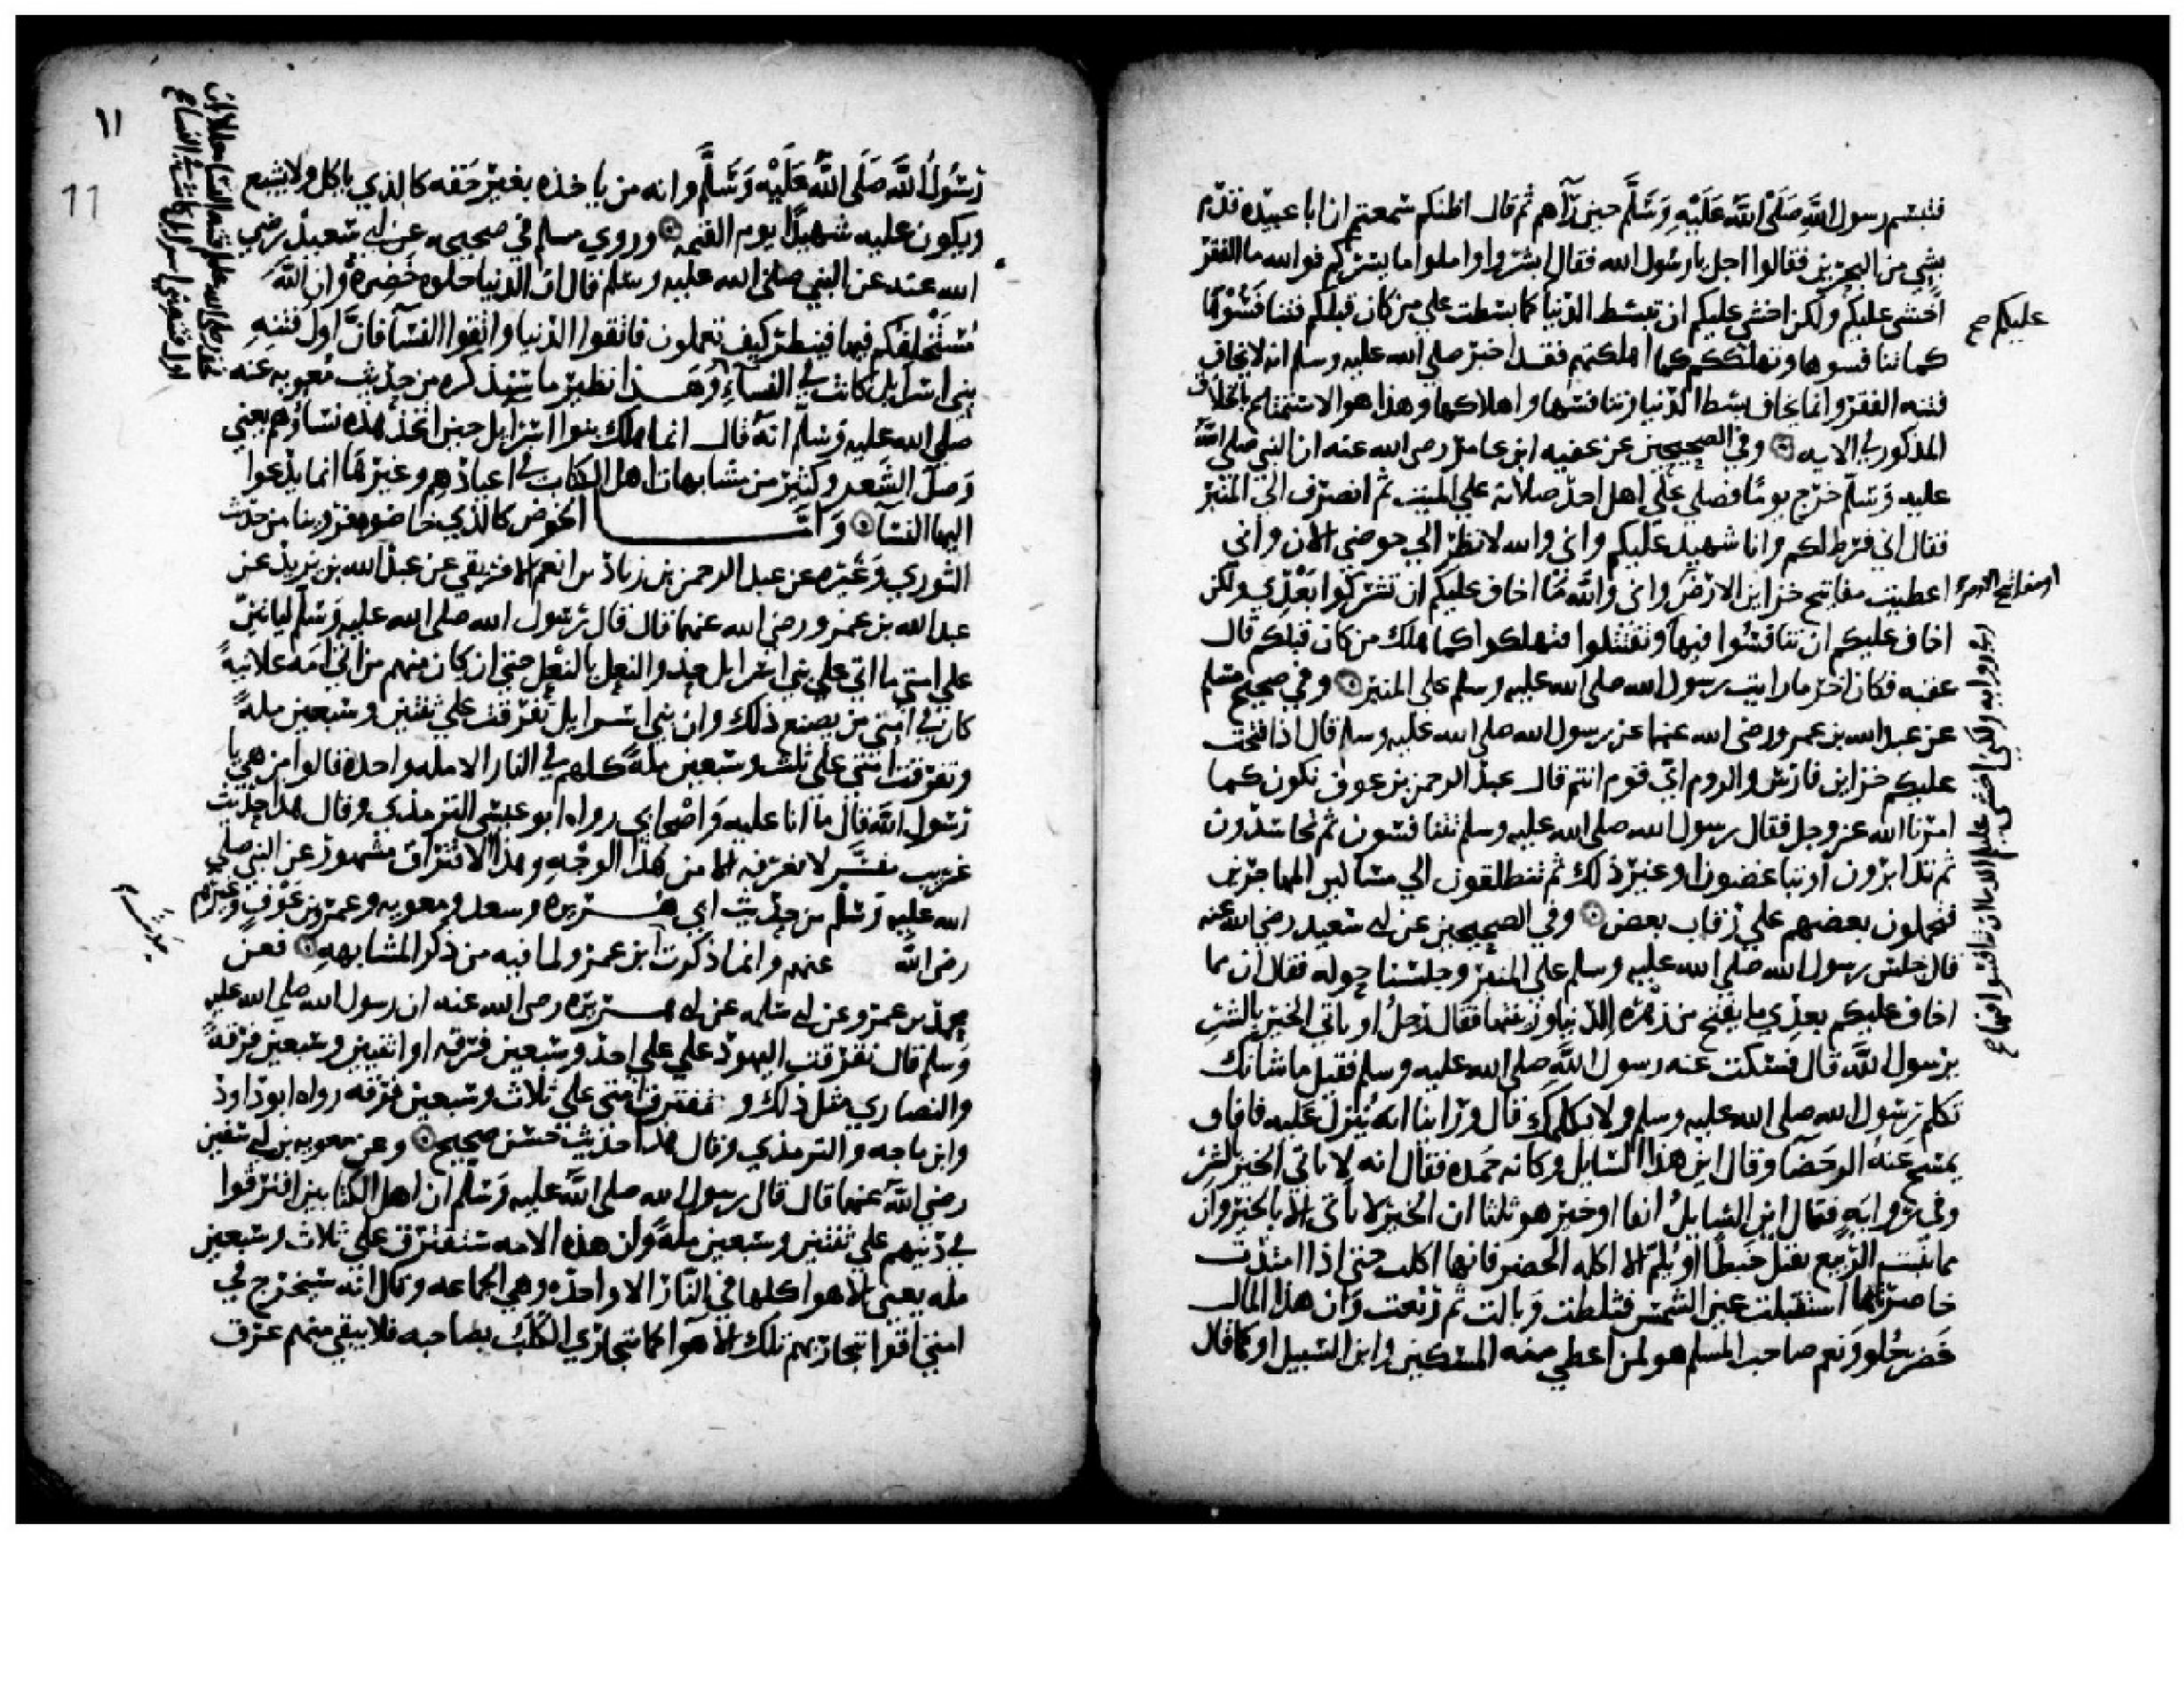 فتبسم رسول الله صَلَّى اللهُ عَلَيْهِ وَسَلَّمَ حين رآهم ثم قال اظنكم سمعتم ان ابا عبيده قدم
بشي من البحرين فقالوا اجل يا رسول الله فقال ابشروا واملوا ما يسركم فوالله ما الفقر
اخشى عليكم ولكن اخشى عليكم ان تبسط الدنيا كما بسطت علي من كان قبلكم فتنافسوها
عليكم صح
كما تنافسوها وتهلككم كما اهلكتهم فقد اخبر صلى الله عليه وسلم انه لا يخاف
فتنه الفقر وانما يخاف بسط الدنيا وتنافسها واهلاكها وهذا هو الاستمتاع بالخلاق
المذكور في الايه وفي الصحيحين عن عقبه ابن عامر رضي الله عنه ان النبي صلى الله
عليه وسلم خرج يوما فصلي علي اهل احد صلاته علي الميت ثم انصرف الي المنبر
فقال اني فرط لكم وانا شهيد عليكم واني والله لانظر الي حوضي الان واني
اعطيت مفاتيح خزاين الارض واني والله ما اخاف عليكم ان تشركوا بعدي ولكن
او مفاتيح الارض
اخاف عليكم ان تنافسوا فيها وتقتتلوا فتهلكوا كما هلك من كان قبلكم قال
عقبه فكان اخر ما رايت رسول الله صلى الله عليه وسلم علي المنبر وفي صحيح مسلم
عن عبد الله بن عمرو رضي الله عنهما عن رسول الله صلى الله عليه وسلم قال اذا فتحت
عليكم خزاين فارس والروم اي قوم انتم قال عبد الرحمن بن عوف نكون كما
امرنا الله عز وجل فقال رسول الله صلى الله عليه وسلم تتنافسون ثم تحاسدون
ثم تتدابرون او تتباغضون او غير ذلك ثم تنطلقون الي مساكين المهاجرين
فتحملون بعضهم علي رقاب بعض وفي الصحيحين عن ابي سعيد رضي الله عنه
قال جلس رسول الله صلى الله عليه وسلم علي المنبر وجلسنا حوله فقال ان مما
اخاف عليكم بعدي ما يفتح من زهرة الدنيا وزينتها فقال رجل او ياتي الخير بالشر
يرسول الله قال فسكت عنه رسول الله صلى الله عليه وسلم فقيل ما شانك
تكلم رسول الله صلى الله عليه وسلم ولا يكلمك قال وراينا انه ينزل عليه فافاق
يمسح عنه الرحضا وقال اين هذا السايل وكانه حمده فقال انه لا ياتي الخير بالشر
وفي روايه فقال اين السايل انفا اوخير هو ثلثا ان الخير لا ياتي الا بالخير وان
مما ينبت الربيع يقتل حبطا او يلم الا اكله الخضر فانها اكلت حتى اذا امتدت
خاصرتاها استقبلت عين الشمس فثلطت وبالت ثم رتعت وان هذا المال
خضر حلو ونعم صاحب المسلم هو لمن اعطي منه المسكين وابن السبيل او كما قال
وفي روايه ولكني اخشى عليكم الدنيا ان تنافسوا فيها صح
١١
11
رسول الله صلى الله عليه وسلم وانه من ياخذه بغير حقه كالذي ياكل ولا يشبع
ويكون عليه شهيدا يوم القيمه وروي مسلم في صحيحه عن ابي سعيد رضي
الله عنه عن النبي صلى الله عليه وسلم قال ان الدنيا حلوه خضره وان الله
مستخلفكم فيها فينظر كيف تعملون فاتقوا الدنيا واتقوا النسآ فان اول فتنه
بني اسرايل كانت في النسآء وهذا نظير ما سنذكره من حديث معويه عنه
صلى الله عليه وسلم انه قال انما هلك بنوا اسرايل حين اتخذ هذه نساؤهم يعني
وصل الشعر وكثير من مشابهات اهل الكتاب في اعيادهم وغيرها انما يدعوا
اليها النسآ واما الخوض كالذي خاضوا فروينا من حديث
الثوري وغيره عن عبد الرحمن بن زياد بن انعم الافريقي عن عبد الله بن يزيد عن
عبد الله بن عمرو رضي الله عنهما قال قال رسول الله صلى الله عليه وسلم لياتين
علي امتي ما اتي علي بني اسرايل حذو النعل بالنعل حتى ان كان منهم من اتى امه علانيه
كان في امتي من يصنع ذلك وان بني اسرايل تفرقت علي ثنتين وسبعين مله
وتفترق امتي علي ثلث وسبعين مله كلهم في النار الا مله واحده قالوا من هي يا
رسول الله قال ما انا عليه واصحابي رواه ابو عيسى الترمذي وقال هذا حديث
غريب مفسر لا نعرفه الا من هذا الوجه وهذا الافتراق مشهور عن النبي صلى
الله عليه وسلم من حديث ابي هريره وسعد ومعويه وعمرو بن عوف وغيرهم
رضي الله عنهم وانما ذكرت ابن عمرو لما فيه من ذكر المشابهه فعن
محمد بن عمرو عن ابي سلمه عن ابي هريره رضي الله عنه ان رسول الله صلى الله عليه
وسلم قال تفرقت اليهود علي علي احد وسبعين فرقه او اثنتين وسبعين فرقه
والنصاري مثل ذلك وتفترق امتي علي ثلاث وسبعين فرقه رواه ابو داود
وابن ماجه والترمذي وقال هذا حديث حسن صحيح وعن معويه بن ابي سفين
رضي الله عنهما قال قال رسول الله صلى الله عليه وسلم ان اهل الكتابين افترقوا
في دينهم علي ثنتين وسبعين مله وان هذه الامه ستفترق علي ثلاث وسبعين
مله يعني الاهوا كلها في النار الا واحده وهي الجماعه وقال انه سيخرج في
امتي اقوام تتجارى بهم تلك الاهوآ كما يتجاري الكلب بصاحبه فلا يبقي منهم عرق